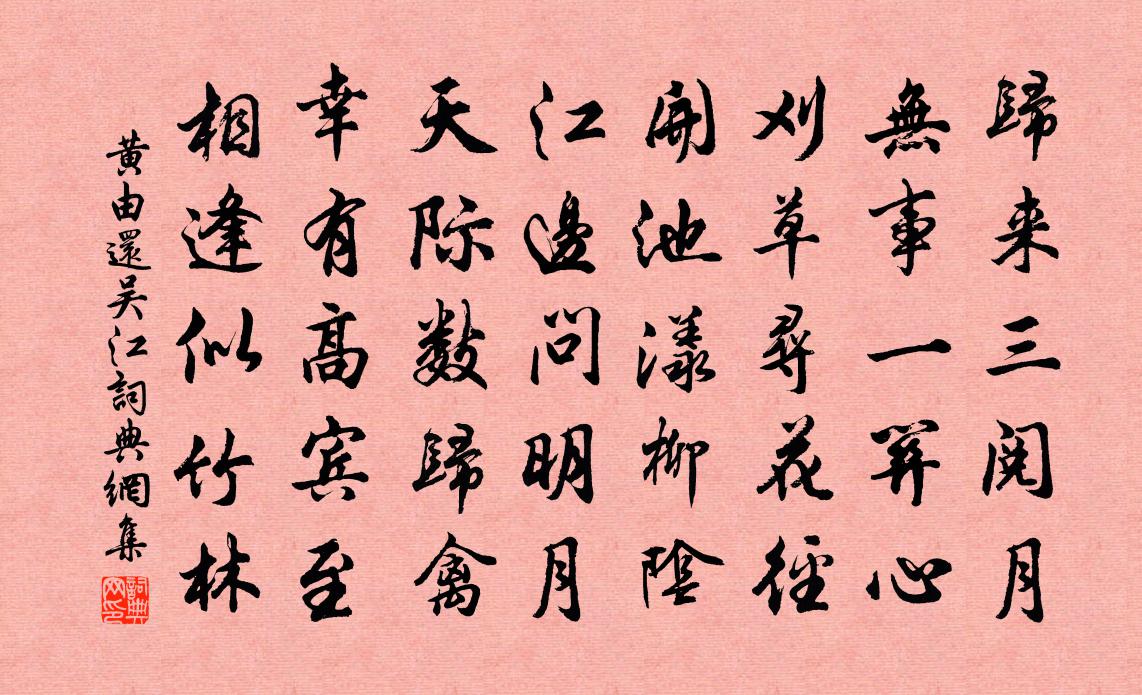 歸来三閱月
無事一關心
刈草尋花徑
開池漾柳陰
江邊問明月
天际數歸禽
幸有高賓至
相逢似竹林
黄由還吴江詞典網集
詞典网印